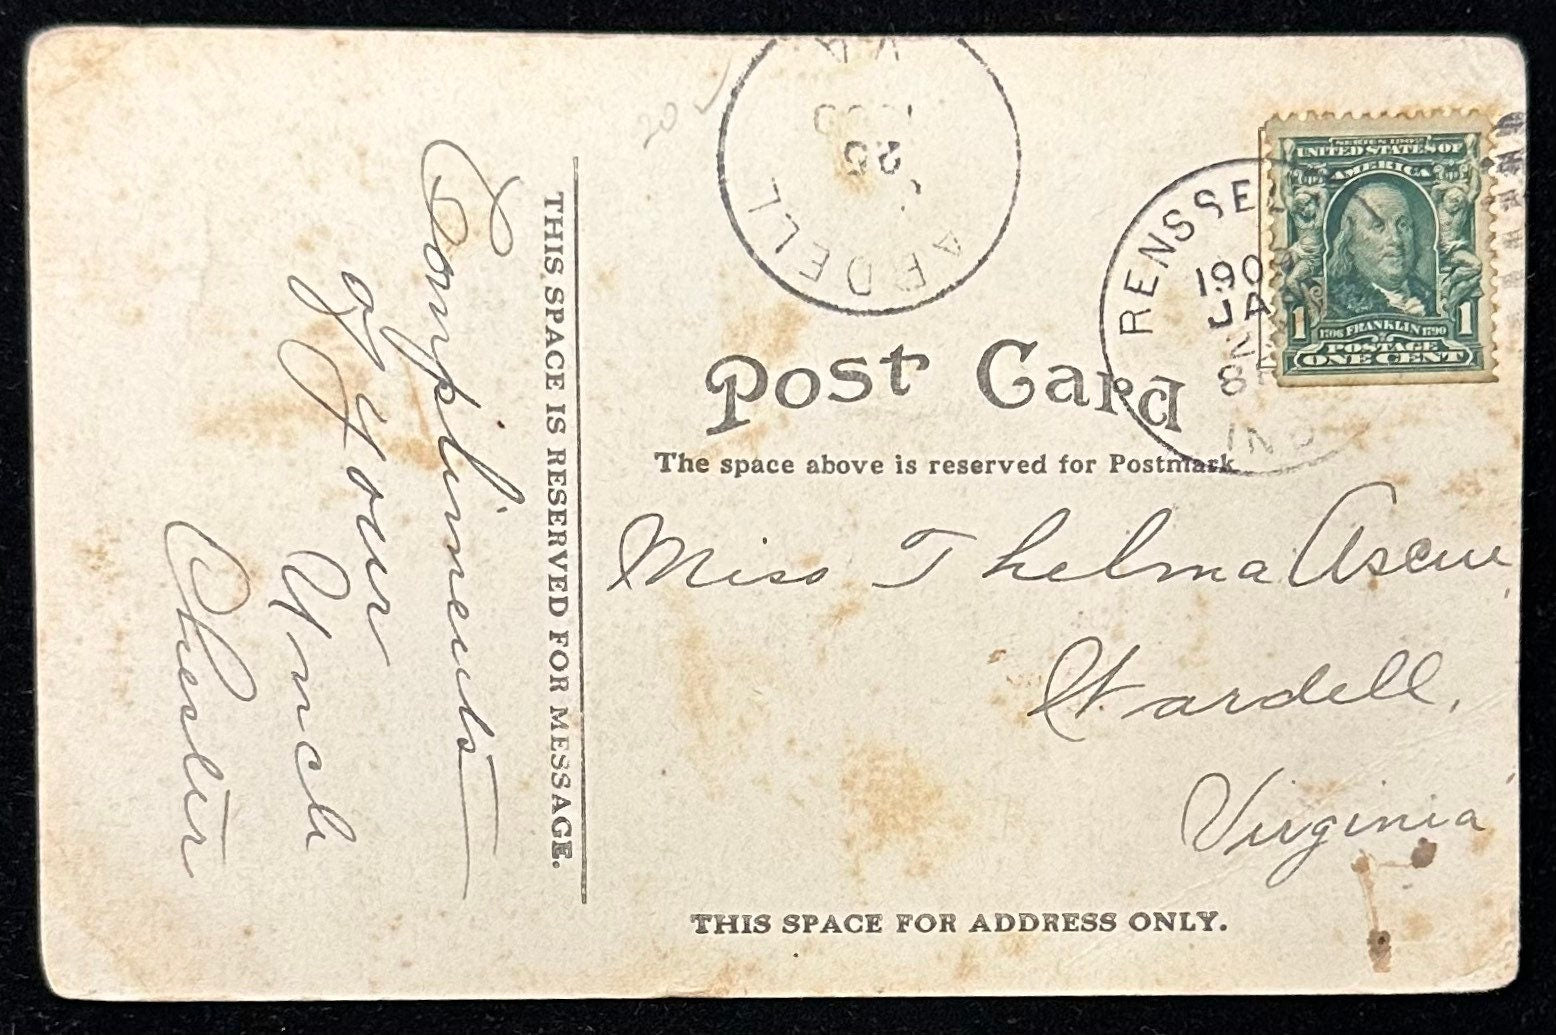 Compliments
of your
Unch
Chester
THIS SPACE IS RESERVED FOR MESSAGE.
VA.
25
ARDELL
RENSSE
190
JA
8
IND
SERIES 1902
UNITED STATES OF
AMERICA
1 1706 FRANKLIN 1790 1
POSTAGE
ONE CENT
Post Card
The space above is reserved for Postmark
Miss Thelma Ascue,
Wardell,
Virginia
THIS SPACE FOR ADDRESS ONLY.